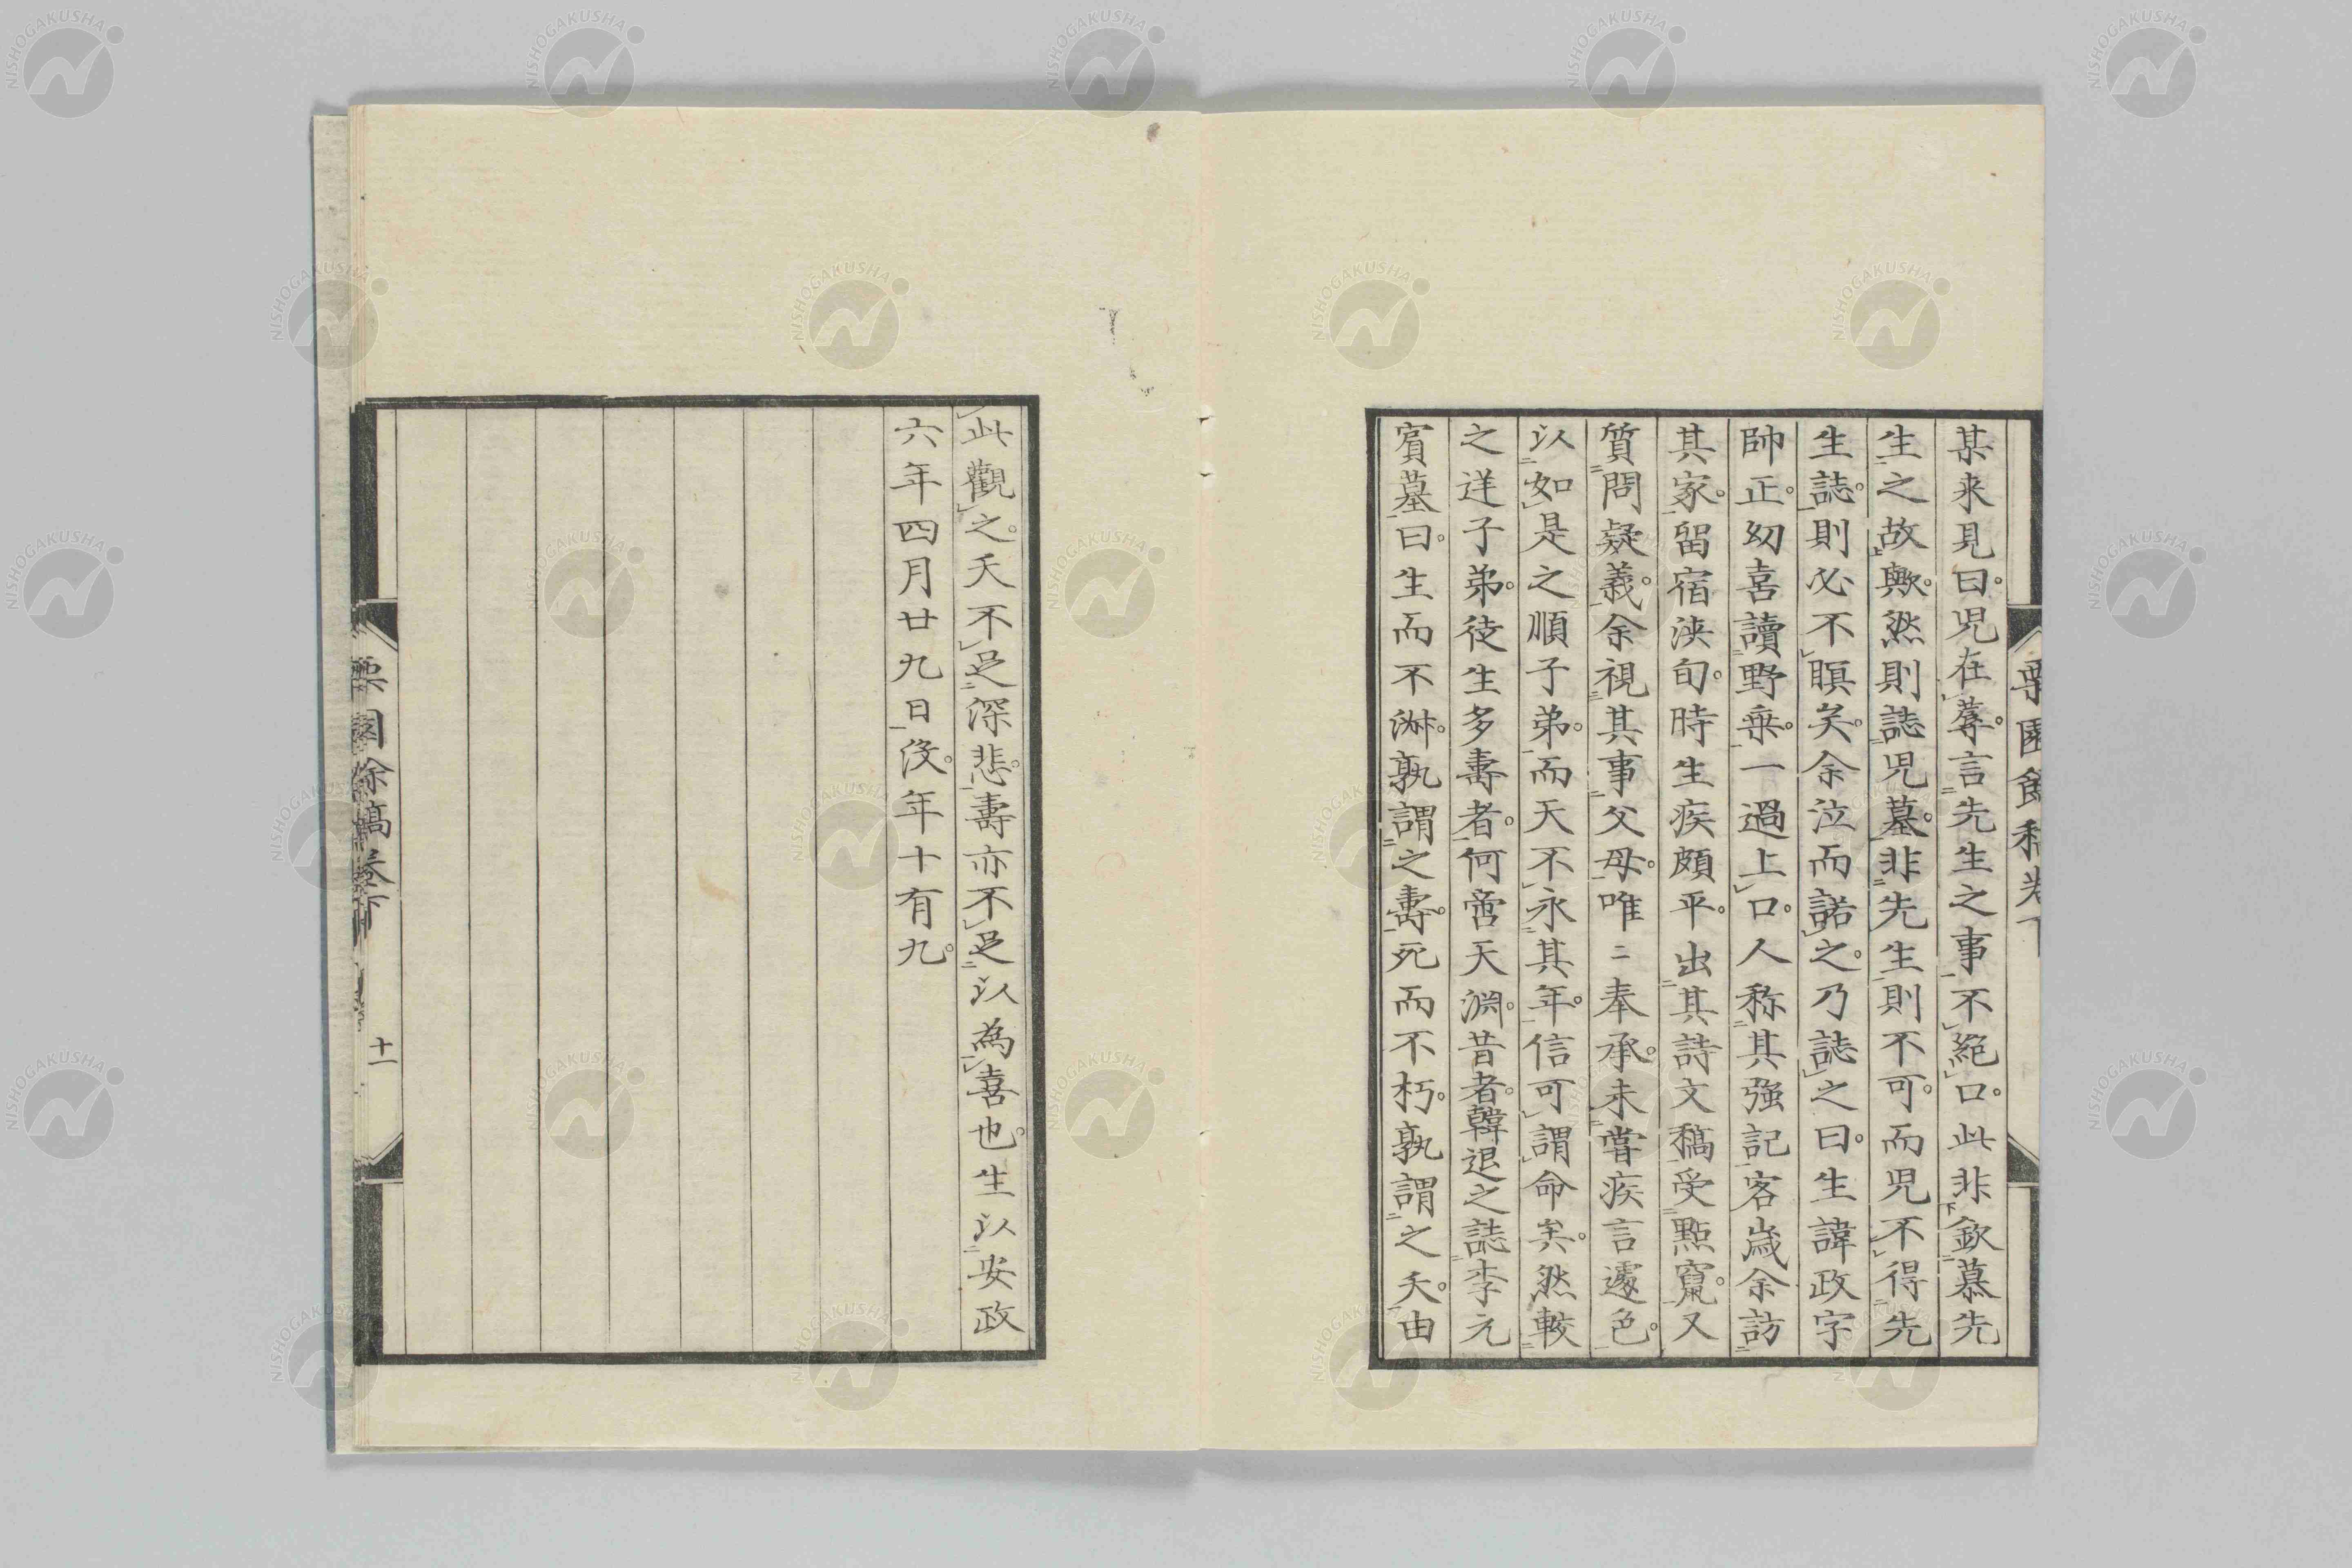 某来見曰。児在辱言先生之事不絶口。此非欽慕先
生之故歟。然則誌児墓。非先生則不可。而児不得先
生誌。則必不瞑矣。余泣而諾之。乃誌之曰。生諱政字
帥正。幼喜讀野乗。一過上口。人称其強記。客歳余訪
其家。留宿浹旬。時生疾頗平。出其詩文稿受點竄。又
質問疑義。余視其事父母。唯二奉承。未嘗疾言遽色。
以如是之順子弟。而天不永其年。信可謂命矣。然較
之逆子弟。徒生多壽者。何啻天淵。昔者韓退之誌李元
賓墓曰。生而不淋。孰謂之壽。死而不朽。孰謂之夭。由
此觀之。夭不足深悲。壽亦不足以為喜也。生以安政
六年四月廿九日没。年十有九。
園餘稿卷下
十一